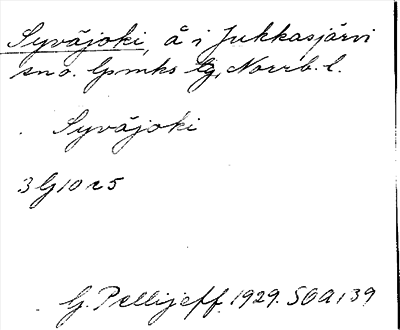 Syväjoki, å i Jukkasjärvi
sn o. lpmks lg, Norrb. l.
Syväjoki
3 G 10 r 5
G. Pellijeff. 1929. SOA 139